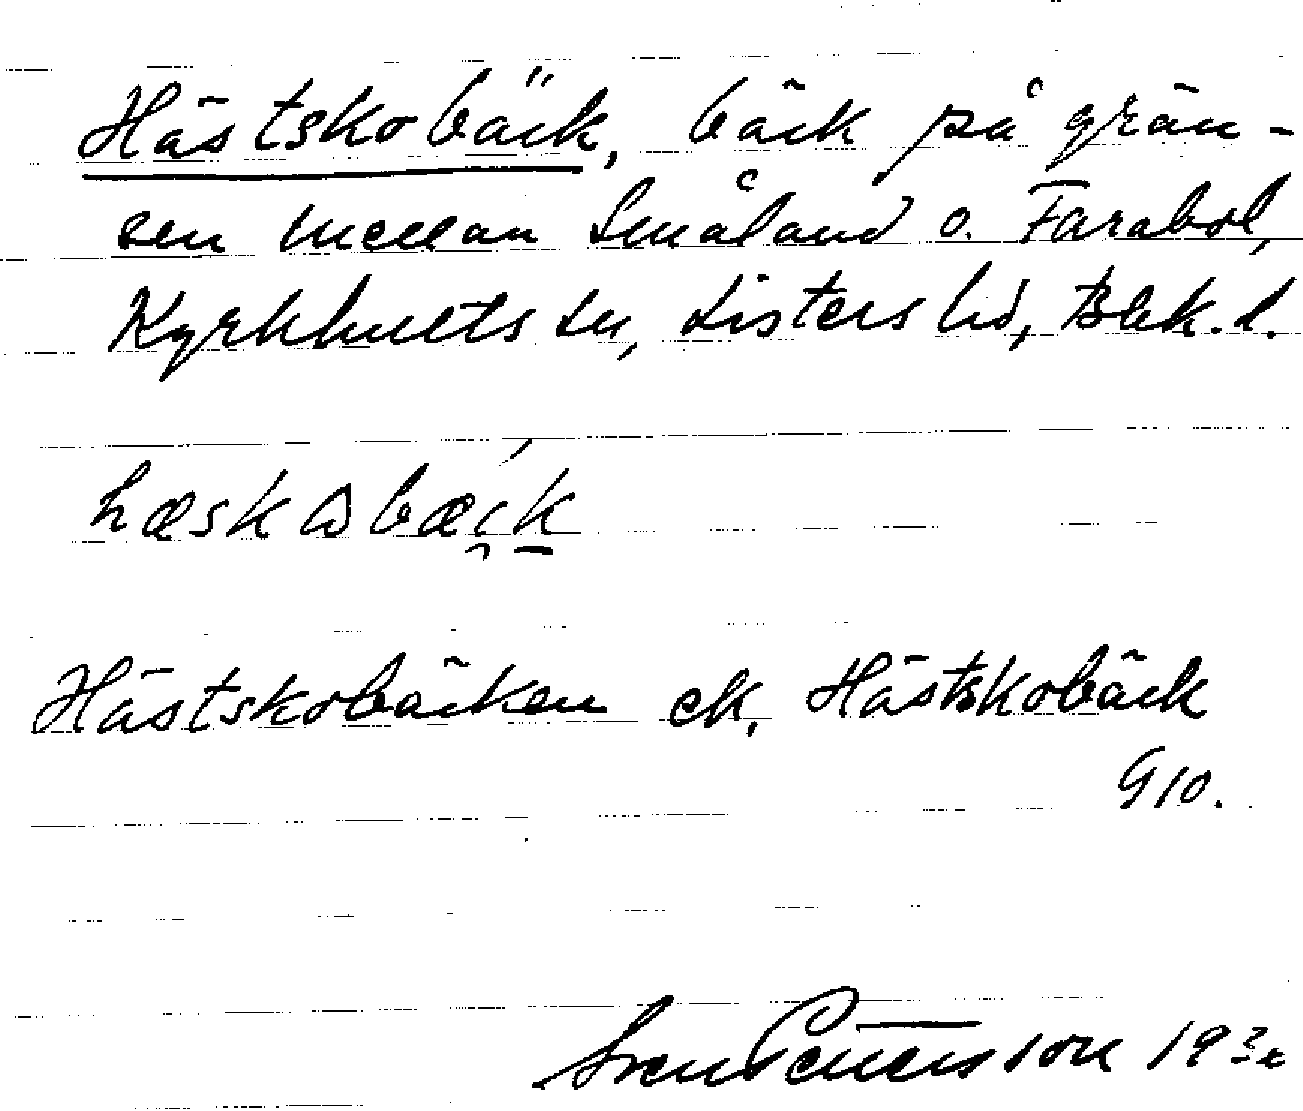 Hästskobäck, bäck på grän-
sen mellan Småland o. Farabol,
Kyrkhults sn, Listers hd, Blek. l.
hæskωbæi̯k̲
Hästskobäcken ek, Hästskobäck
G 10.
Sven Pettersson